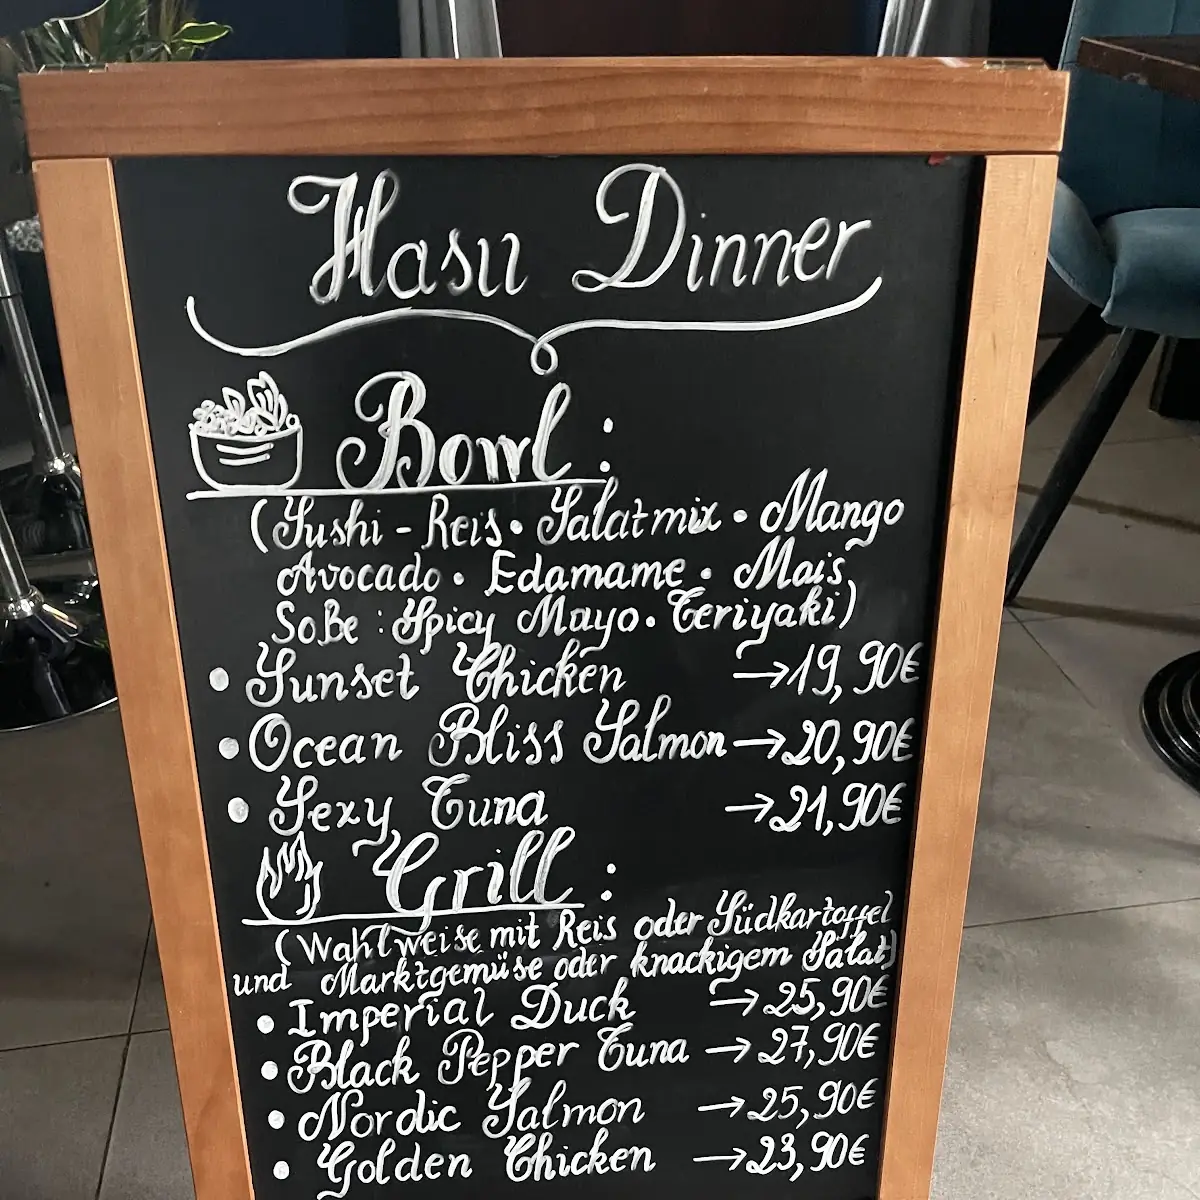 Hasu Dinner
Bowl :
(Sushi - Reis • Salatmix • Mango
Avocado • Edamame • Mais
Soße : Spicy Mayo • Teriyaki)
• Sunset Chicken → 19,90€
• Ocean Bliss Salmon → 20,90€
• Sexy Tuna → 21,90€
Grill :
(Wahlweise mit Reis oder Südkartoffel
und Marktgemüse oder knackigem Salat)
• Imperial Duck → 25,90€
• Black Pepper Tuna → 27,90€
• Nordic Salmon → 25,90€
• Golden Chicken → 23,90€